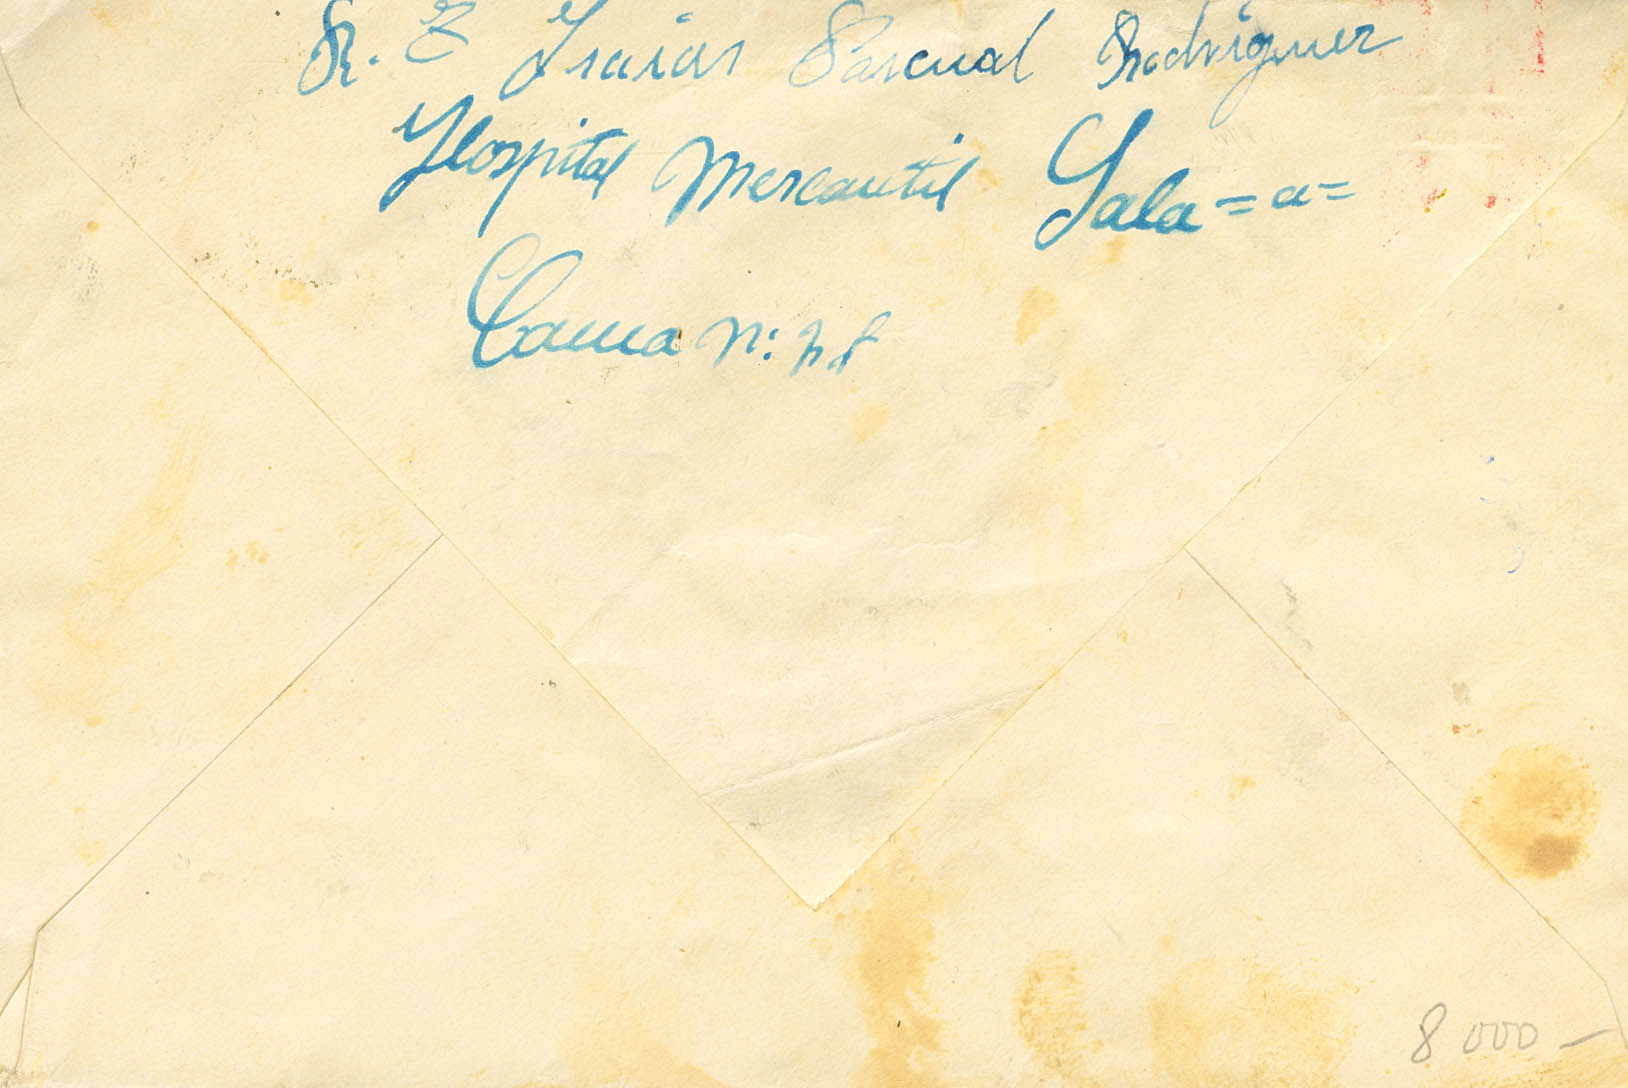 R. E Isaias Pascual Rodriguez
Hospital Mercantil Sala = a =
Cama n:
8 000 –